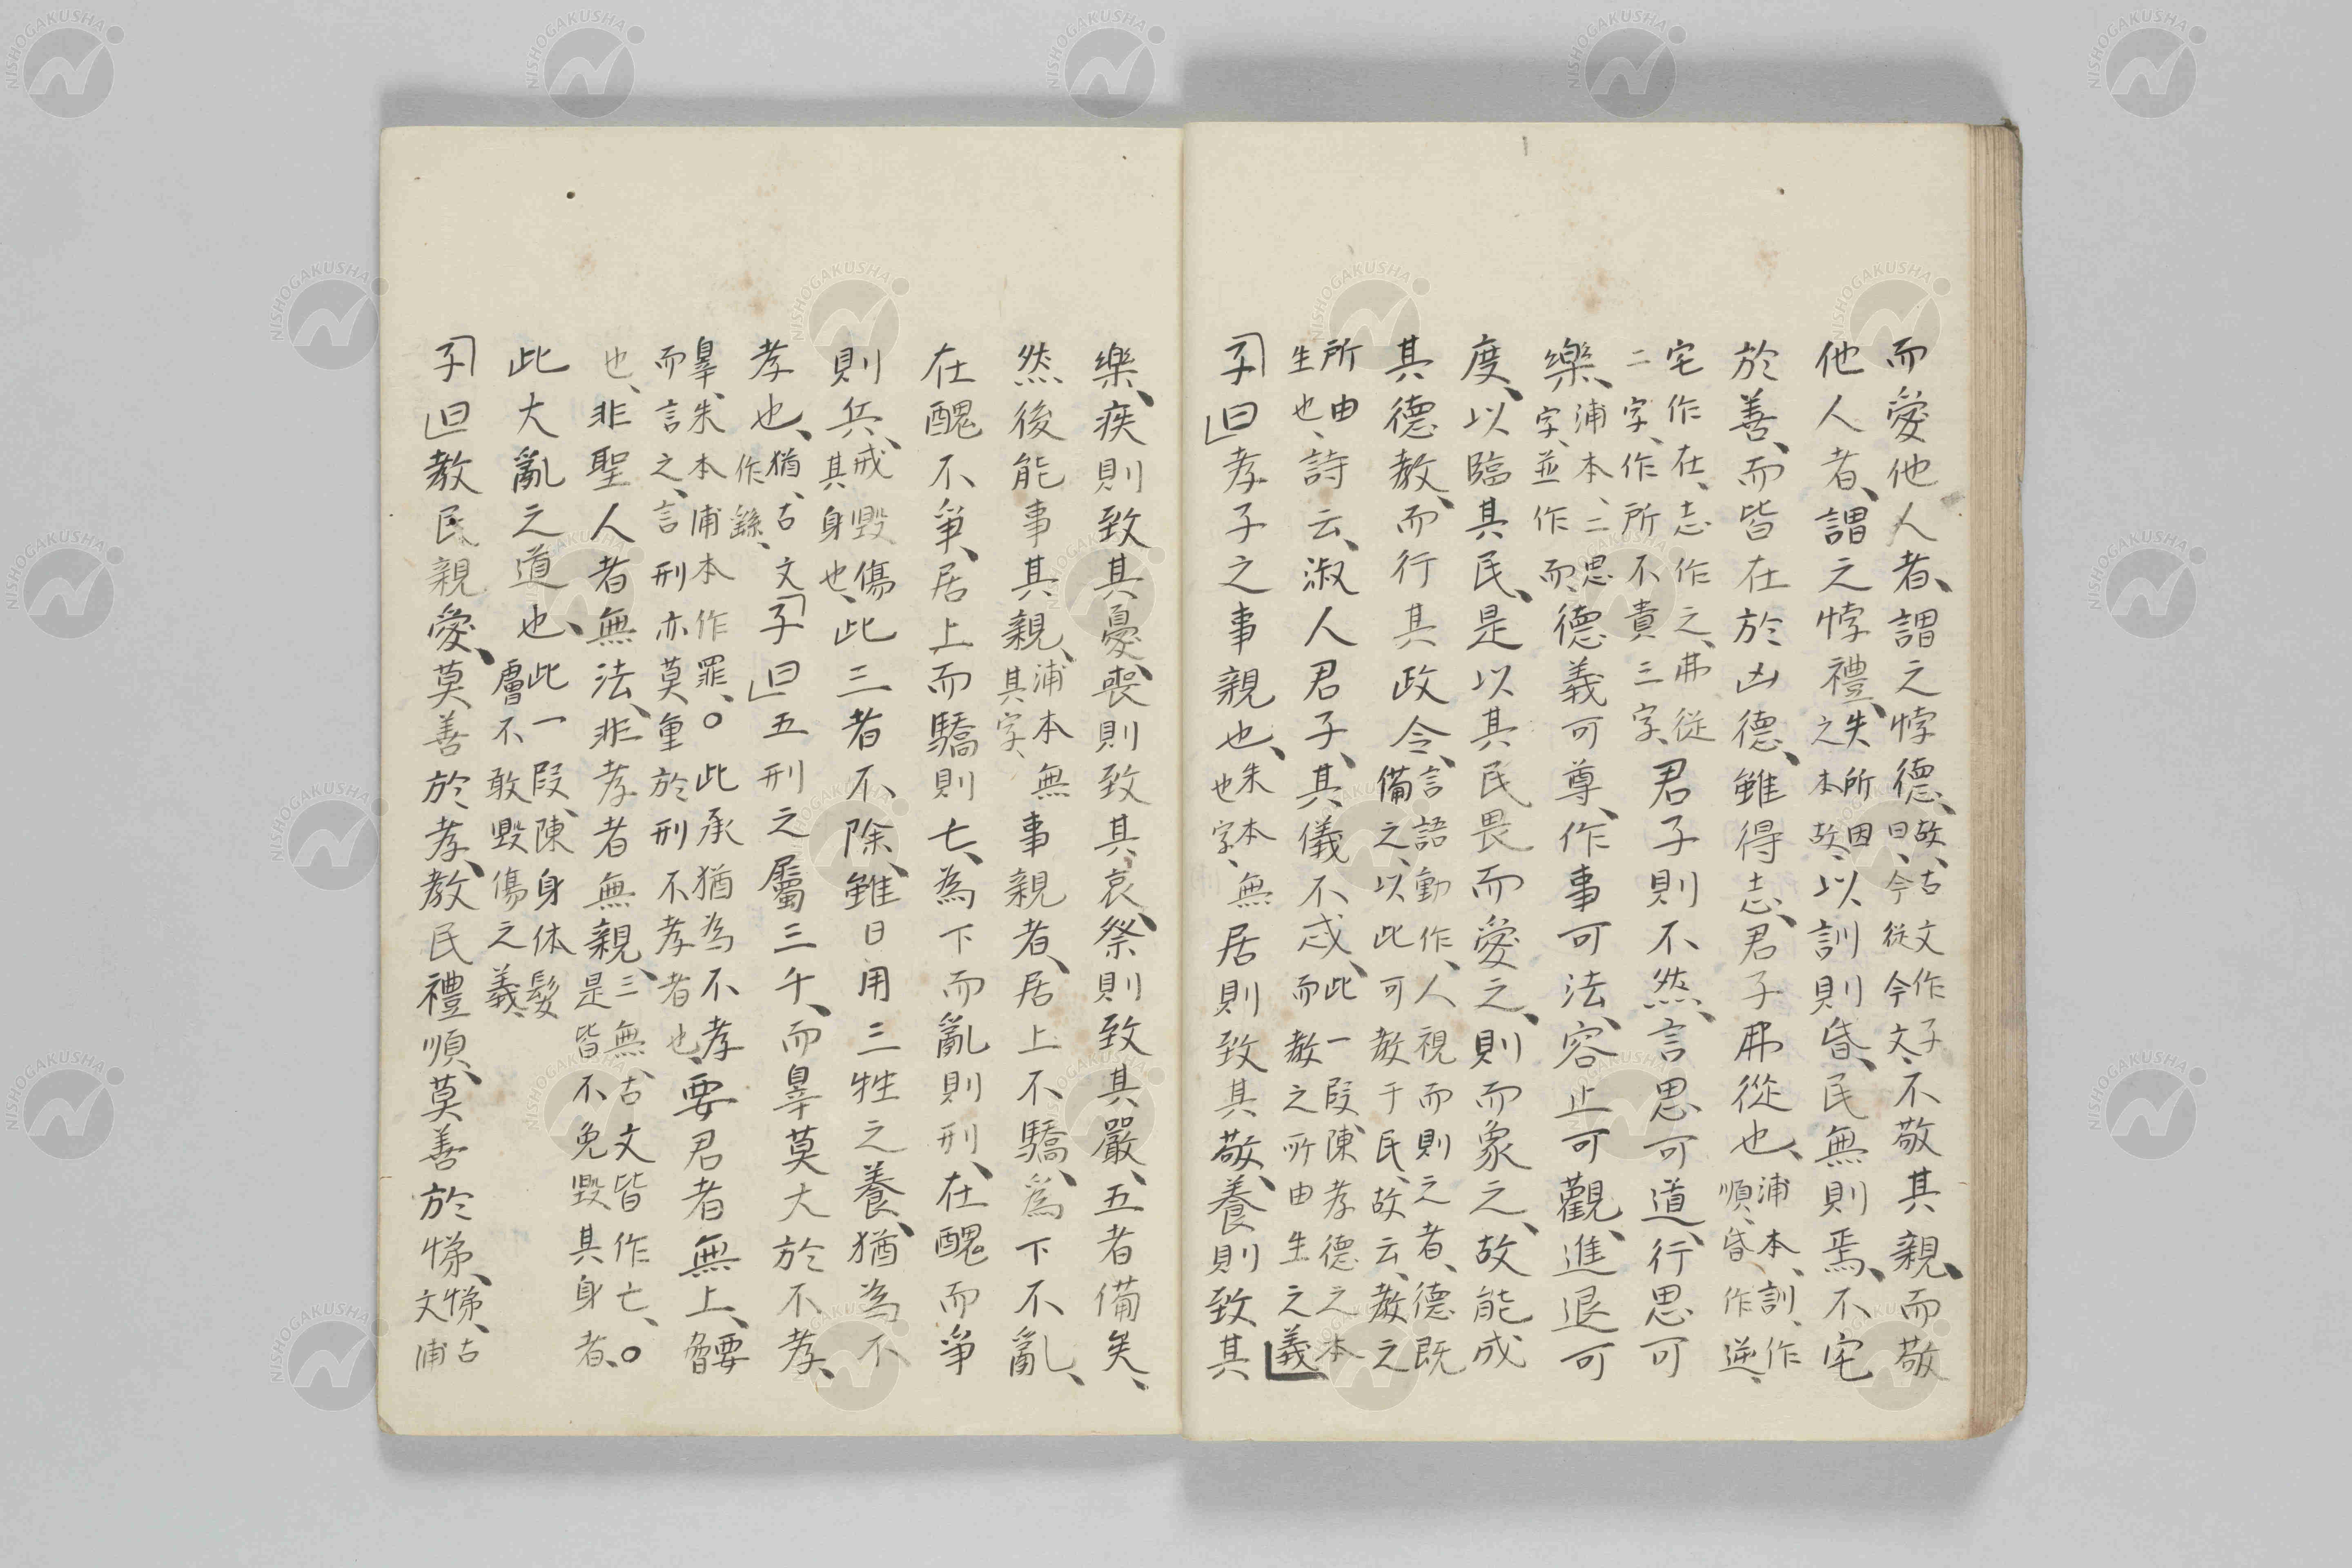 而愛他人者、謂之悖德、故、古文作子曰、今從今文、不敬其親、而敬
他人者、謂之悖禮、失所因之本故、以訓則昏、民無則焉、不宅
於善、而皆在於凶德、雖得志、君子弗從也、浦本、訓、作順、昏作逆、
宅作在、志作之、弗從二字、作所不貴三字、君子則不然、言思可道、行思可
樂、浦本、二思字、並作而、德義可尊、作事可法、容止可觀、進退可
度、以臨其民、是以其民畏而愛之、則而象之、故能成
其德教、而行其政令、言語動作、人視而則之者、德既備之、以此可教于民、故云、教之
所由生也、詩云、淑人君子、其儀不忒、此一段、陳孝德之本而教之所由生之義」
「子曰」孝子之事親也、朱本、無也字、居則致其敬、養則致其
樂、疾則致其憂、喪則致其哀、祭則致其嚴、五者備矣、
然後能事其親、浦本無其字、事親者、居上不驕、為下不亂、
在醜不爭、居上而驕則亡、為下而亂則刑、在醜而爭
則兵、戒毀傷其身也、此三者不除、雖日用三牲之養、猶為不
孝也、猶、古文作繇、「子曰」五刑之屬三千、而辠莫大於不孝、
辠、朱本浦本作罪、○此承猶為不孝而言之、言刑亦莫重於刑不孝者也、要君者無上、要脅
也、非聖人者無法、非孝者無親、三無、古文皆作亡、○是皆不免毀其身者、
此大亂之道也、此一段、陳身体髮膚不敢毀傷之義、
「子曰」教民親愛、莫善於孝、教民禮順、莫善於悌、悌、古文浦